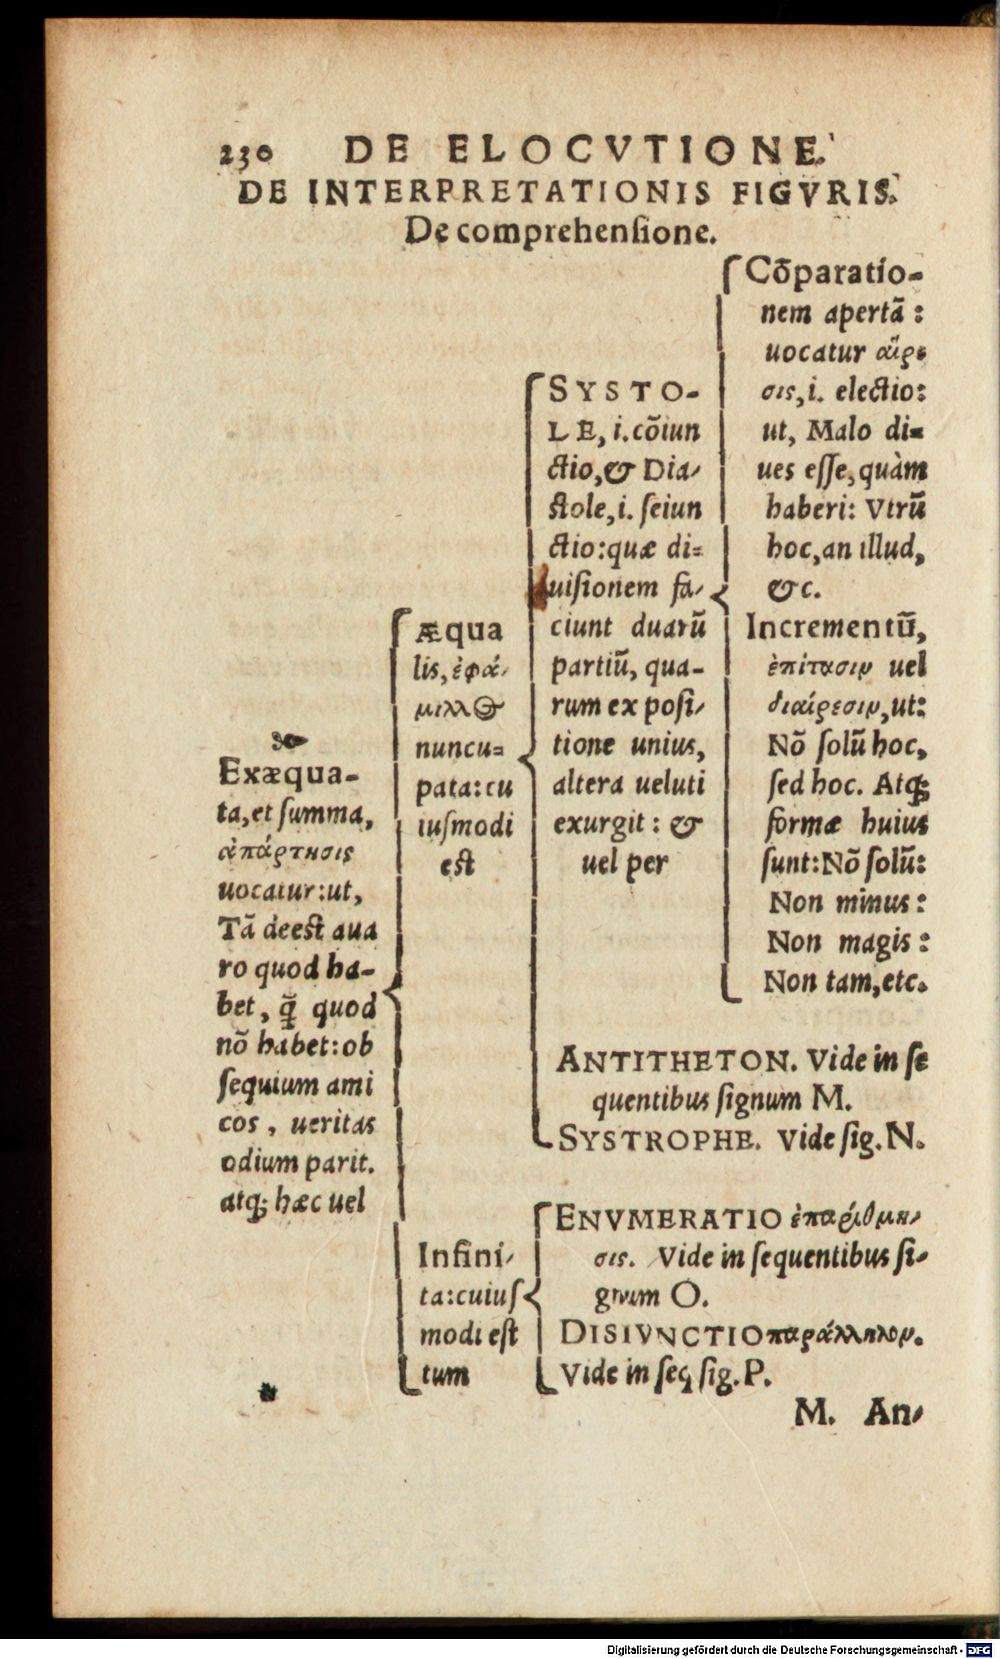 230 DE ELOCVTIONE.
DE INTERPRETATIONIS FIGVRIS.
De comprehensione.
Exæqua-
ta, et summa,
ἀπάρτησις
uocatur: ut,
Tā deest aua
ro quod ha-
bet, q̄̃ quod
nō habet: ob
sequium ami
cos, ueritas
odium parit.
atq; hæc uel
æqua
lis, ἐφά-
μιλλΘ
nuncu-
pata: cu
iusmodi
est
SYSTO-
LE, i. cōiun
ctio, & Dia-
stole, i. seiun
ctio: quæ di-
uisionem fa-
ciunt duarū
partiū, qua-
rum ex posi-
tione unius,
altera ueluti
exurgit: &
uel per
Cōparatio-
nem apertā:
uocatur αἵρε
σις, i. electio:
ut, Malo di-
ues esse, quàm
haberi: Vtrū
hoc, an illud,
&c.
Incrementū,
ἐπίτασιν uel
διαίρεσιν, ut:
Nō solū hoc,
sed hoc. Atq;
formæ huius
sunt: Nō solū:
Non minus:
Non magis:
Non tam, etc.
ANTITHETON. Vide in se
quentibus signum M.
SYSTROPHE. Vide sig. N.
Infini-
ta: cuius
modi est
tum
ENVMERATIO ἐπαρίθμη-
σις. Vide in sequentibus si-
gnum O.
DISIVNCTIO παράλληλον.
Vide in seq sig. P.
M. An-
Digitalisierung gefördert durch die Deutsche Forschungsgemeinschaft - DFG